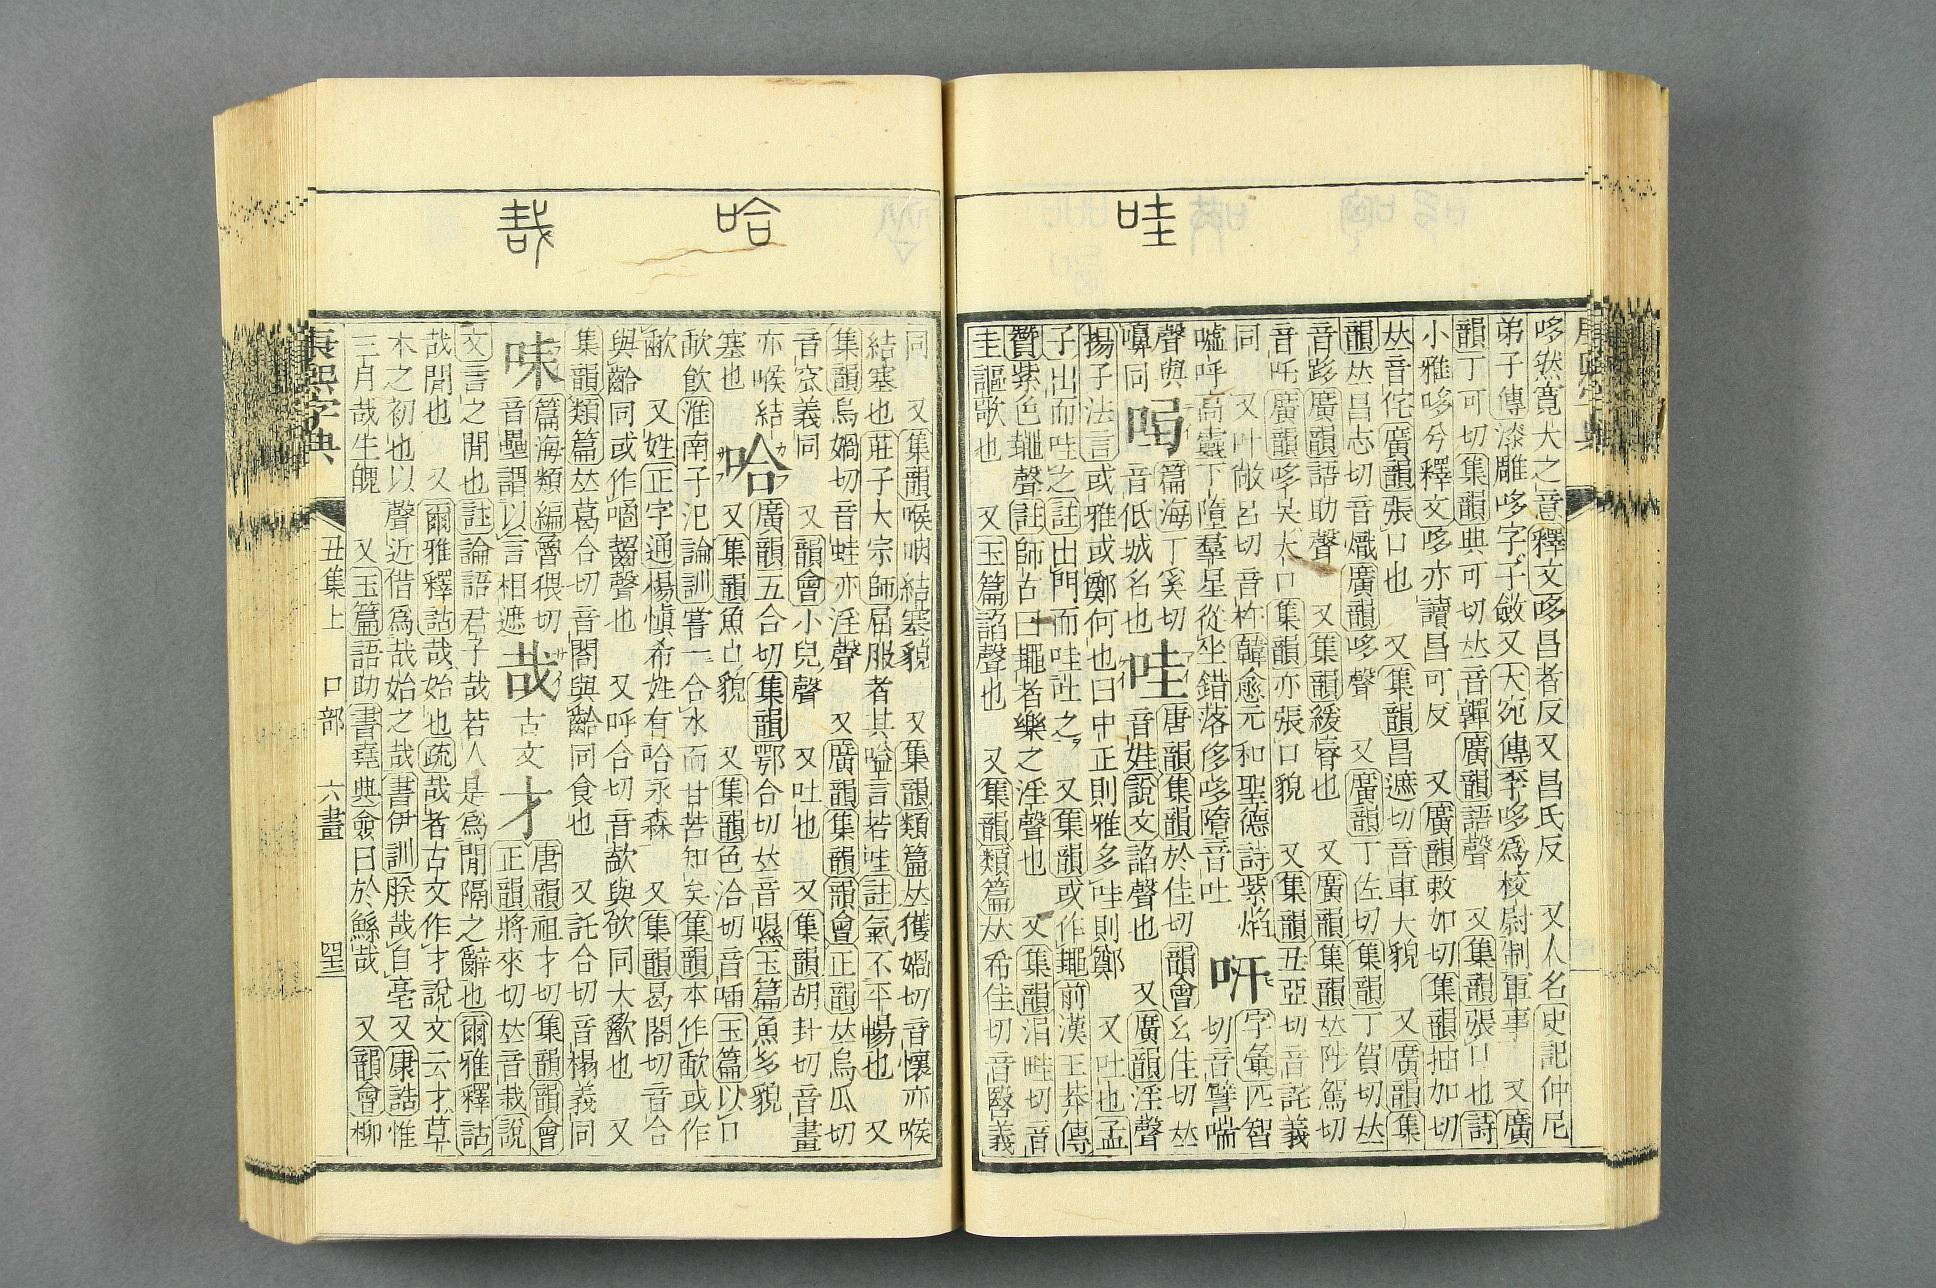 哇
哆然寛大之音釋文哆昌者反又昌氏反　又人名史記仲尼
弟子傳漆雕哆字子斂又大宛傳李哆爲校尉制軍事　又廣
韻丁可切集韻典可切𠀤音嚲廣韻語聲　又集韻張口也詩
小雅哆兮釋文哆亦讀昌可反　又廣韻敕加切集韻抽加切
𠀤音侘廣韻張口也　又集韻昌遮切音車大貌　又廣韻集
韻𠀤昌志切音熾廣韻哆聲　又廣韻丁佐切集韻丁賀切𠀤
音跢廣韻語助聲　又集韻緩脣也　又廣韻集韻𠀤陟駕切
音吒廣韻哆吳大口集韻亦張口貌　又集韻丑亞切音詫義
同　又叶敞呂切音杵韓愈元和聖德詩紫焰
噓呼高靈下墮羣星從坐錯落侈哆墮音吐　㕼字彙匹智切音譬喘
聲與嚊同　㖵篇海丁奚切音低城名也　哇唐韻集韻於佳切韻會幺佳切𠀤音娃說文諂聲也　又廣韻淫聲
揚子法言或雅或鄭何也曰中正則雅多哇則鄭　又吐也孟
子出而哇之註出門而哇吐之　又集韻或作䵷前漢王莽傳
贊紫色䵷聲註師古曰䵷者樂之淫聲也　又集韻涓畦切音
圭謳歌也　又玉篇諂聲也　又集韻類篇𠀤希佳切音醫義
哈
哉
同　又集韻喉咽結塞貌　又集韻類篇𠀤獲媧切音懷亦喉
結塞也莊子大宗師屈服者其嗌言若哇註氣不平暢也　又
集韻烏媧切音蛙亦淫聲　又廣韻集韻韻會正韻𠀤烏瓜切
音窊義同　又韻會小兒聲　又吐也　又集韻胡卦切音畫
亦喉結塞也　哈廣韻五合切集韻鄂合切𠀤音㬎玉篇魚多貌
又集韻魚口貌　又集韻色洽切音唼玉篇以口
歃飲淮南子氾論訓嘗一哈水而甘苦知矣集韻本作歃或作
㰱　又姓正字通楊愼希姓有哈永森　又集韻曷閤切音合
與㿣同或作嗑齧聲也　又呼合切音㰹與欱同大歠也　又
集韻類篇𠀤葛合切音閤與㿣同食也　又託合切音榻義同
味篇海類編魯猥切音壘謂以言相遮　哉古文才唐韻祖才切集韻韻會正韻將來切𠀤音栽說
文言之閒也註論語君子哉若人是爲閒隔之辭也爾雅釋詁
哉閒也　又爾雅釋詁哉始也疏哉者古文作才說文云才草
木之初也以聲近借爲哉始之哉書伊訓朕哉自亳又康誥惟
三月哉生魄　又玉篇語助書堯典僉曰於鯀哉　又韻會柳
康熙字典　丑集上　口部　六畫　四三